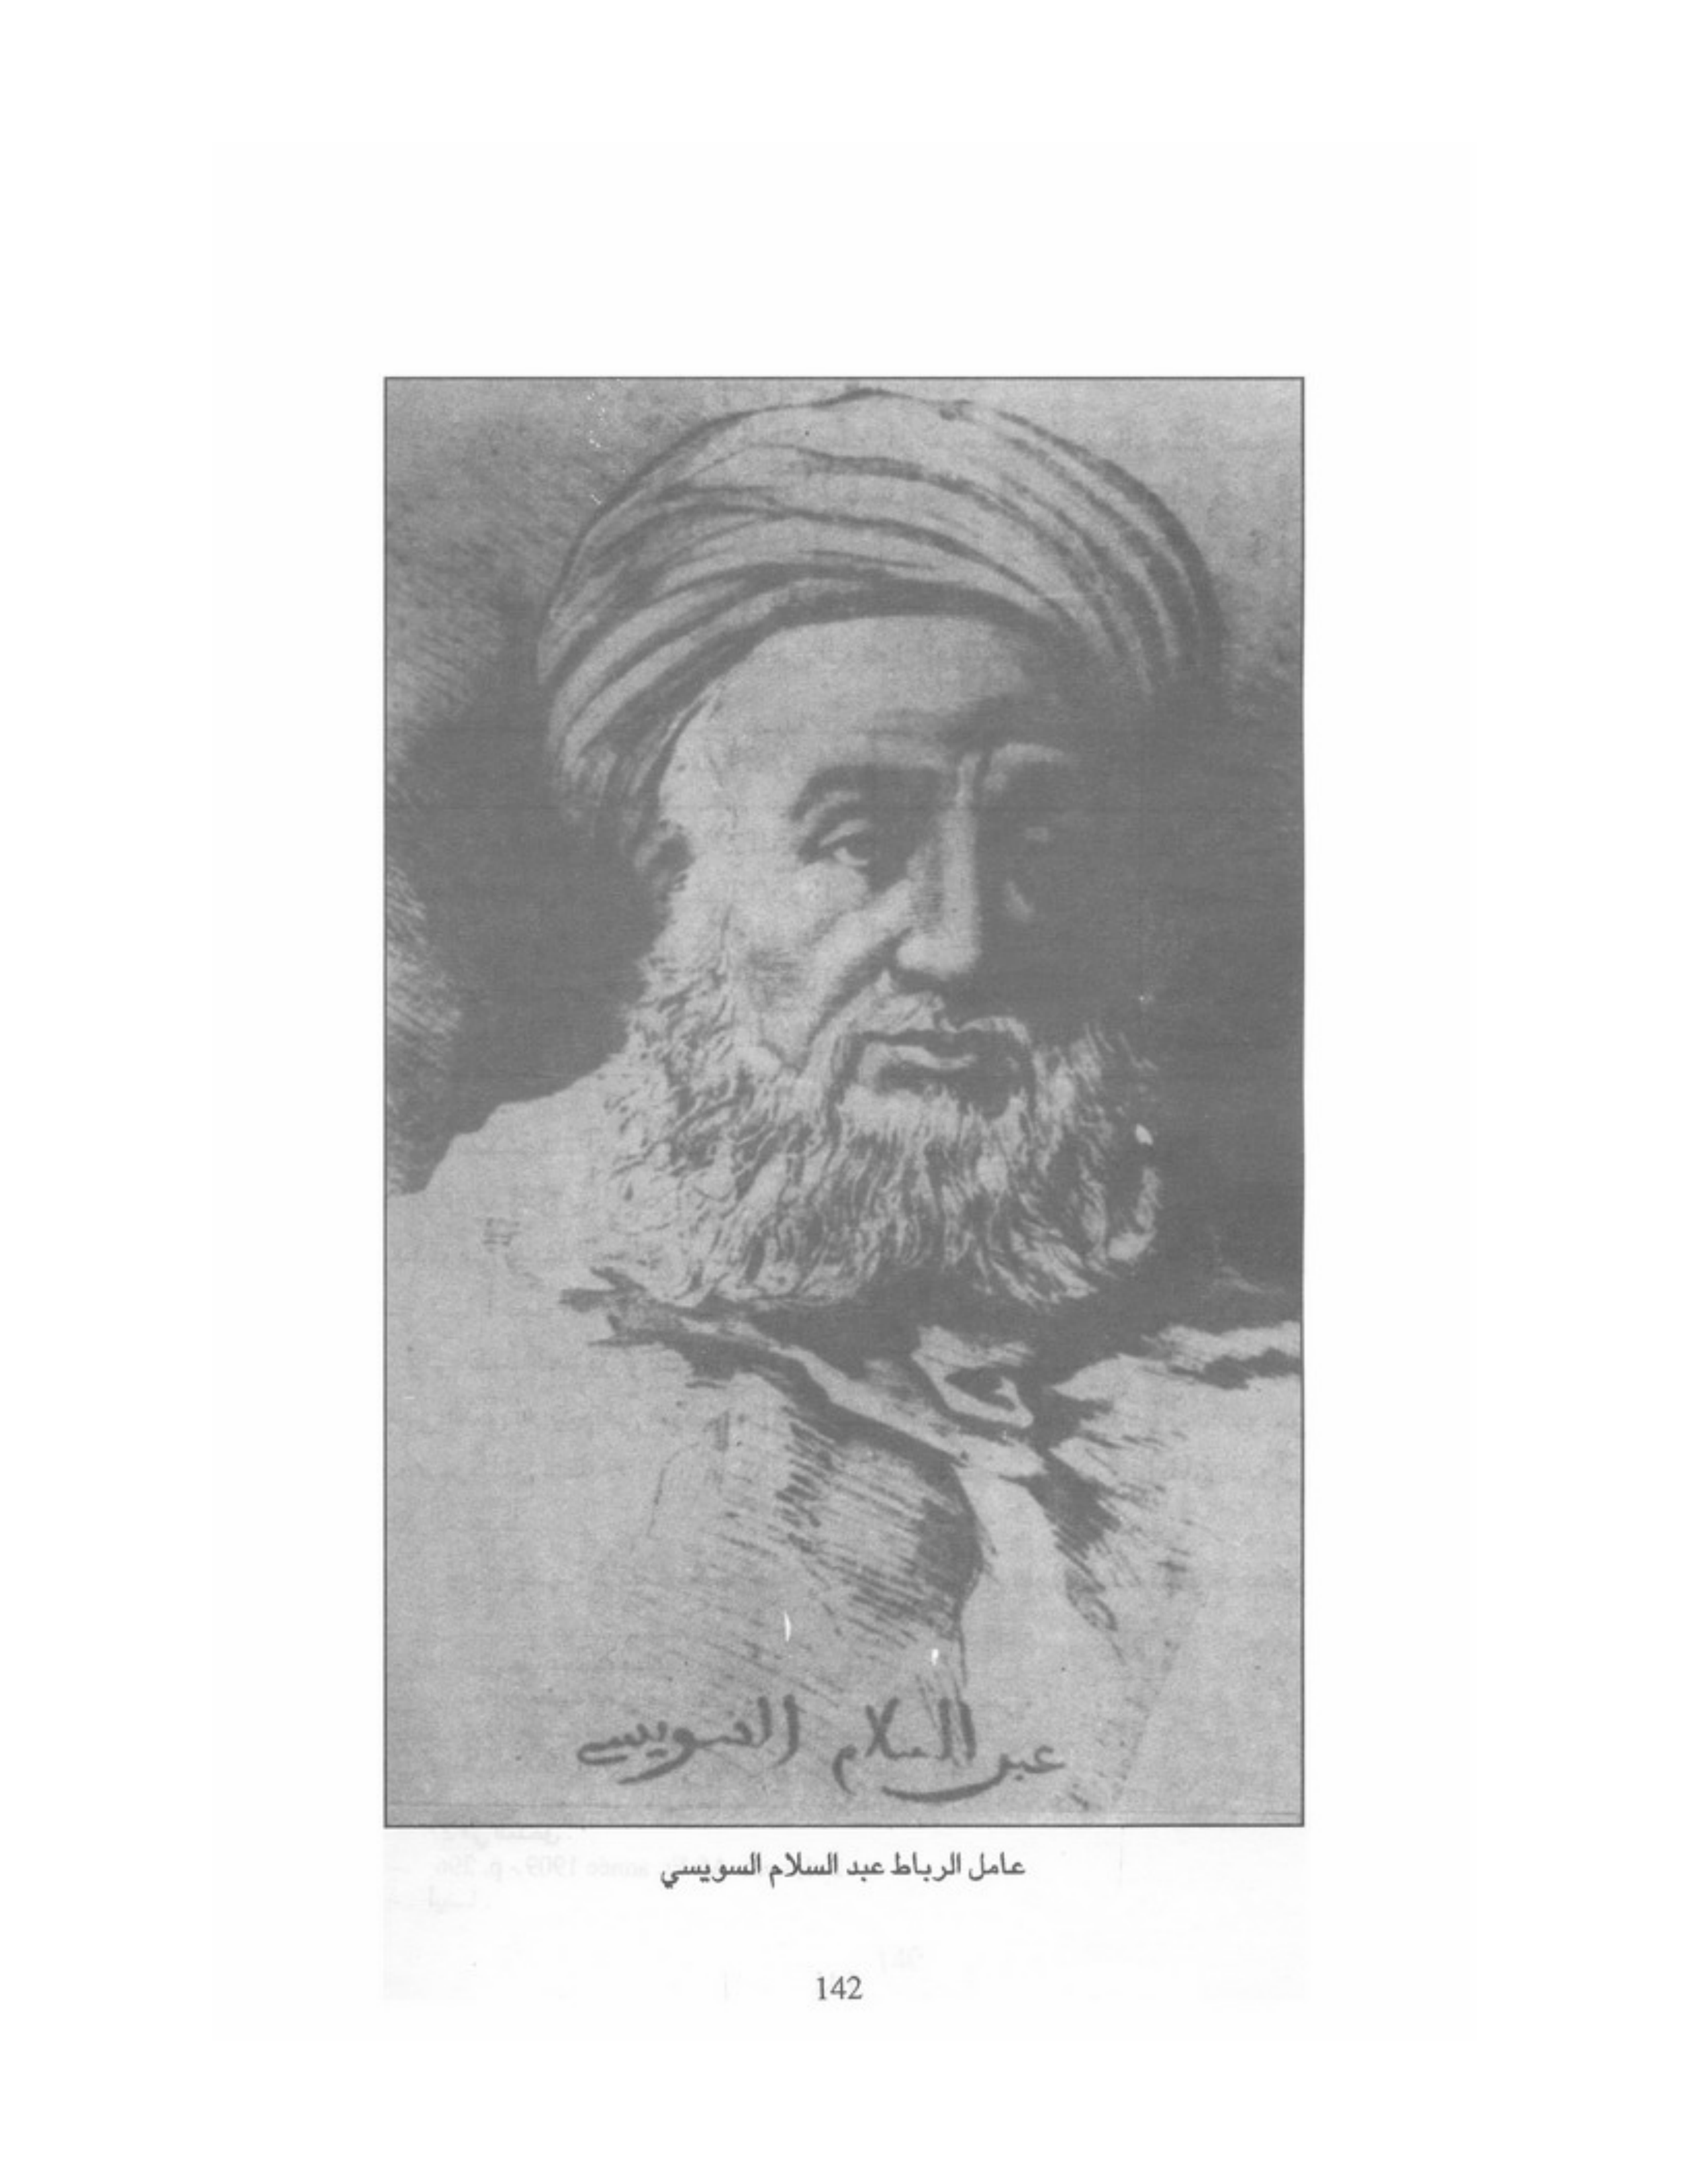 عبد السلام السويسي
عامل الرباط عبد السلام السويسي
142